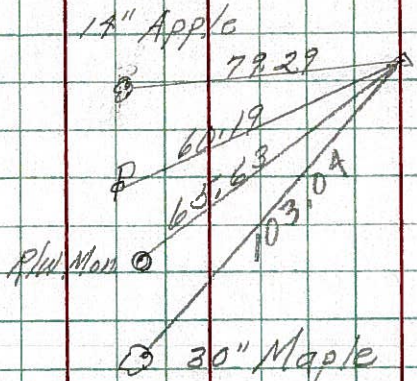 14" Apple
79.29
60.19
65.63
103.04
R/W. Mon
30" Maple